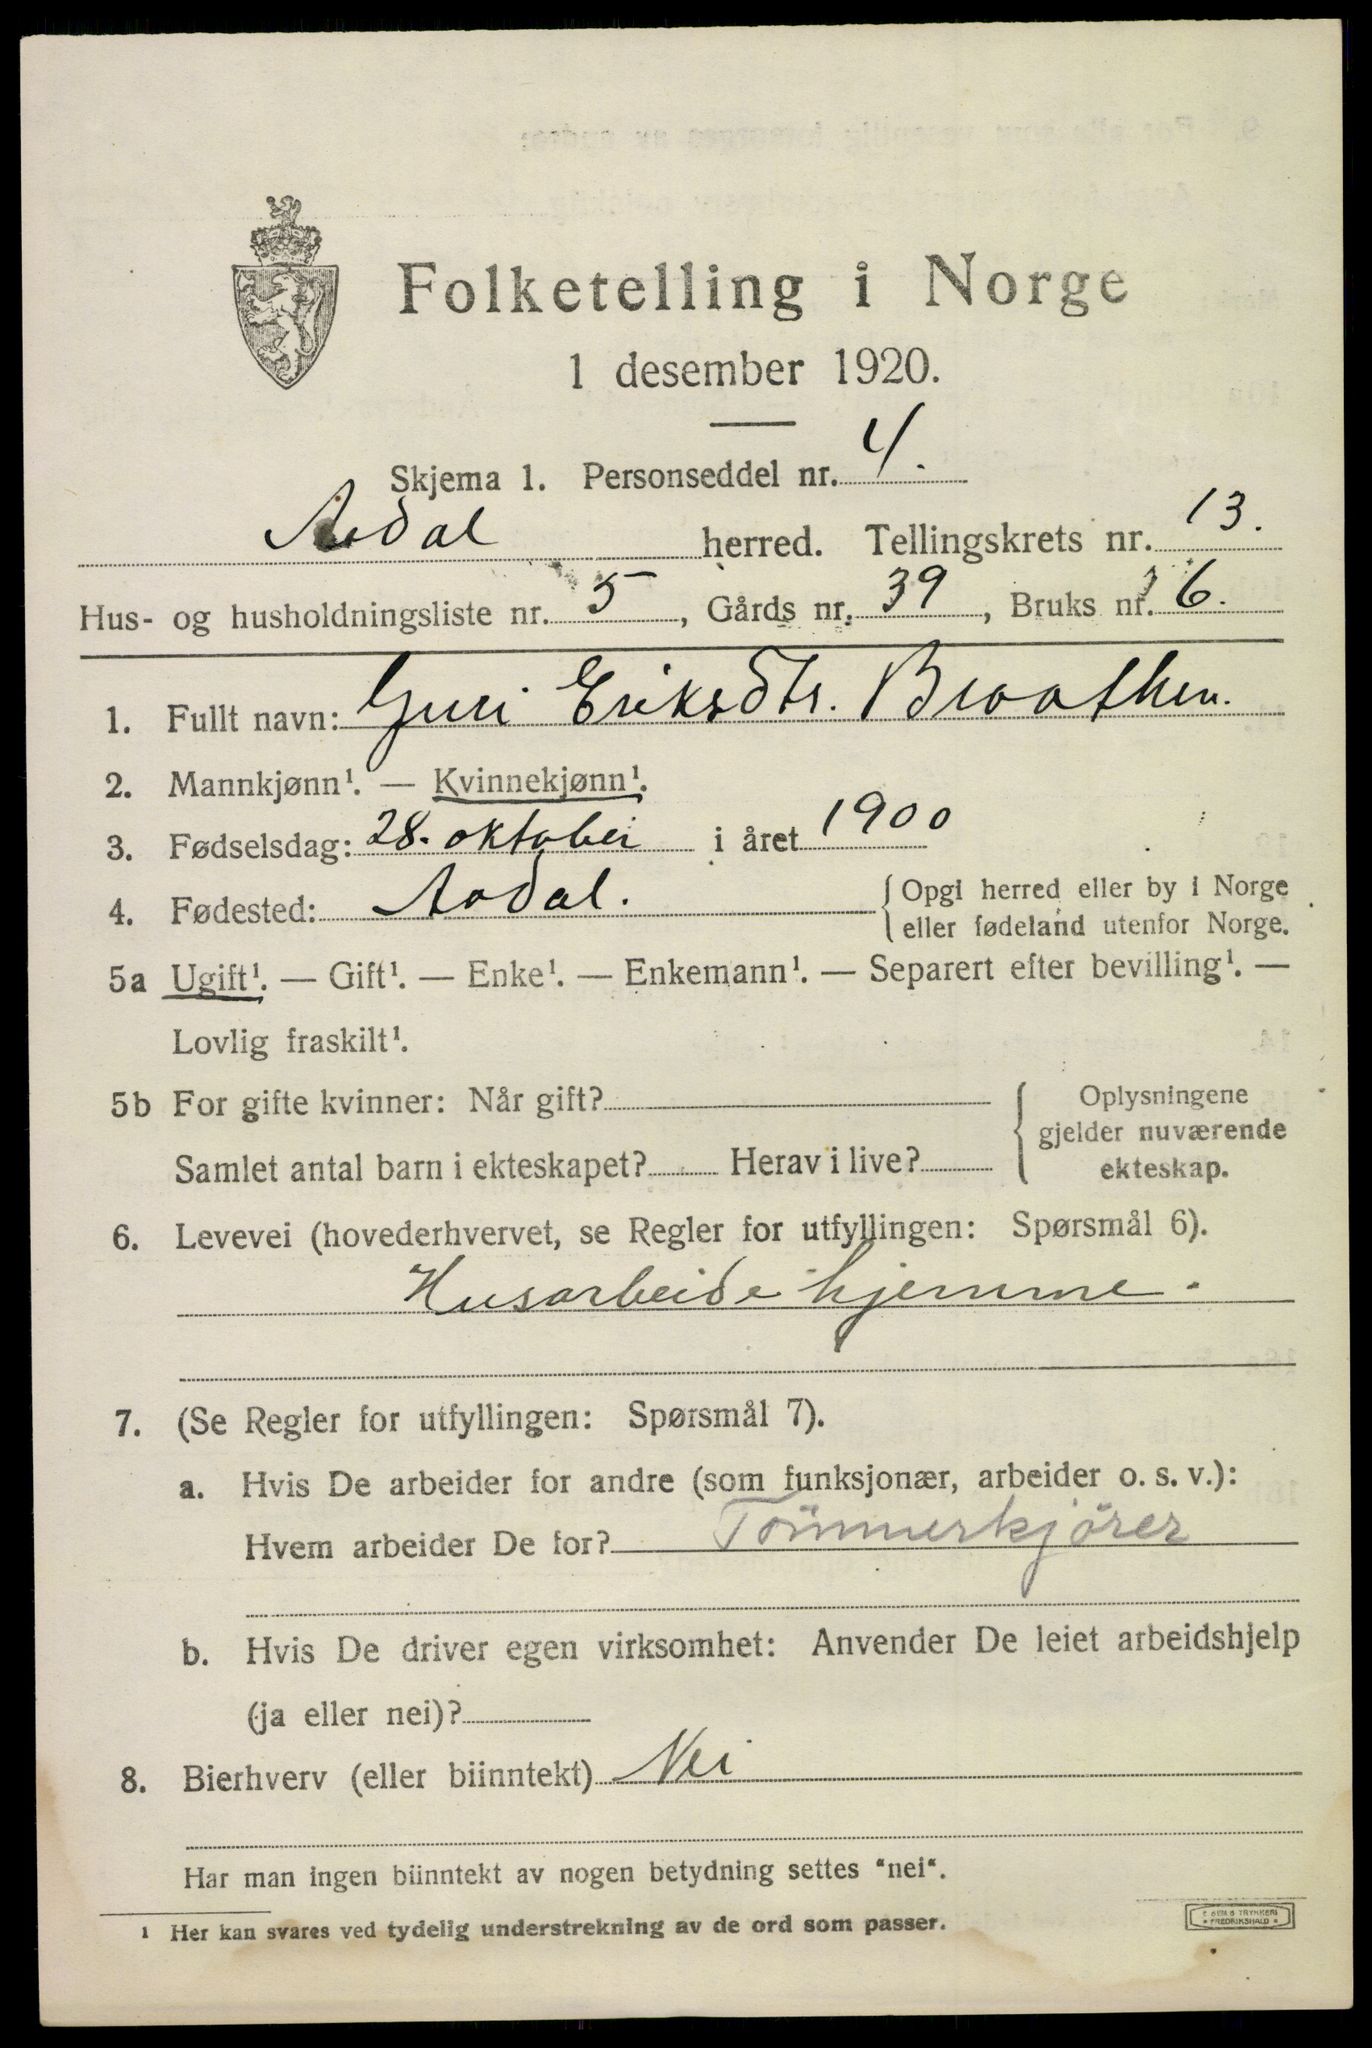 Folketelling i Norge
1 desember 1920.
Skjema 1. Personseddel nr. 4.
Aadal herred. Tellingskrets nr. 13.
Hus- og husholdningsliste nr. 5, Gårds nr. 39, Bruks nr. 6.
1. Fullt navn: Guri Eriksdtr. Braathen.
2. Mannkjønn¹. — Kvinnekjønn¹.
3. Fødselsdag: 28. oktober i året 1900
4. Fødested: Aadal. { Opgi herred eller by i Norge
eller fødeland utenfor Norge.
5a Ugift¹. — Gift¹. — Enke¹. — Enkemann¹. — Separert efter bevilling¹. —
Lovlig fraskilt¹.
5b For gifte kvinner: Når gift? { Oplysningene
gjelder nuværende
Samlet antal barn i ekteskapet? Herav i live? ekteskap.
6. Levevei (hovederhvervet, se Regler for utfyllingen: Spørsmål 6).
Husarbeide hjemme.
7. (Se Regler for utfyllingen: Spørsmål 7).
a. Hvis De arbeider for andre (som funksjonær, arbeider o. s. v.):
Hvem arbeider De for? Tömmerkjörer
b. Hvis De driver egen virksomhet: Anvender De leiet arbeidshjelp
(ja eller nei)?
8. Bierhverv (eller biinntekt) Nei
Har man ingen biinntekt av nogen betydning settes "nei".
¹ Her kan svares ved tydelig understrekning av de ord som passer.
TRYKKERI
FREDRIKSHALD